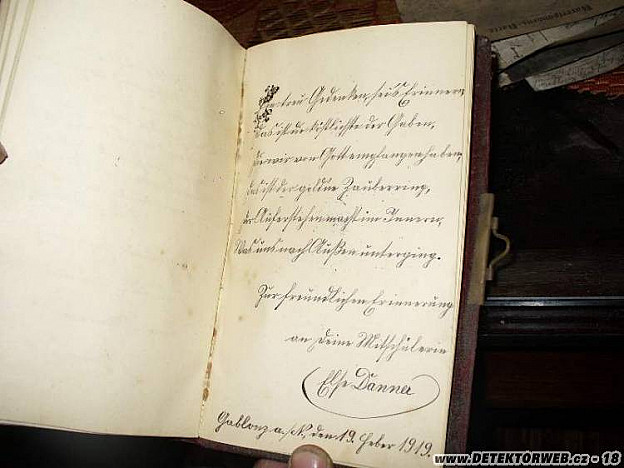 Ein treu Gedenken, lieb Erinnern,
Das ist die köstlichste der Gaben,
Die wir von Gott empfangen haben,
Das ist der goldne Zauberring,
Der Auferstehen macht im Innern,
Was uns nach Außen unterging.
Zur freundlichen Erinnerung
an deine Mitschülerin
Else Danna
Gablonz a./N., den 19. Feber 1919.
Korrespondenz-Karte
www.DETEKTORWEB.cz - 18